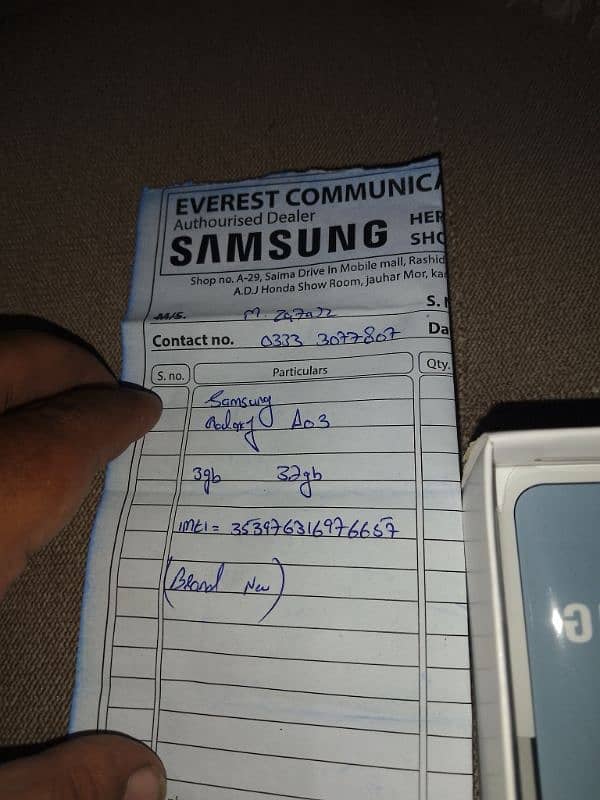 EVEREST COMMUNICA
Authourised Dealer
SAMSUNG
HER
SHO
Shop no. A-29, Saima Drive In Mobile mall, Rashid
A.D.J Honda Show Room, jauhar Mor, kar
S. N
M/S. M.
Contact no. 0333 3077807
Da
S. no. Particulars Qty.
Samsung
A03
3gb 32gb
IMEI = 353976316976657
(Brand New)
G